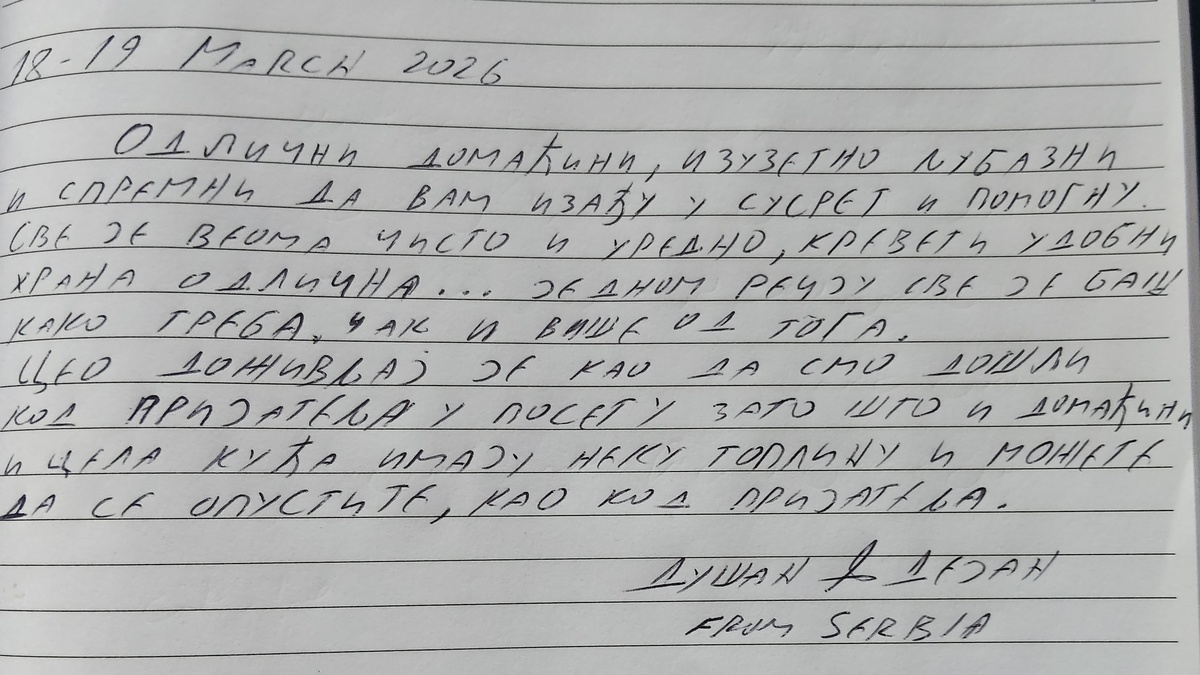 18-19 MARCH 2026
ОДЛИЧНИ ДОМАЋИНИ, ИЗУЗЕТНО ЉУБАЗНИ
И СПРЕМНИ ДА ВАМ ИЗАЂУ У СУСРЕТ И ПОМОГНУ.
СВЕ ЈЕ ВЕОМА ЧИСТО И УРЕДНО, КРЕВЕТИ УДОБНИ
ХРАНА ОДЛИЧНА... ЈЕДНОМ РЕЧЈУ СВЕ ЈЕ БАШ
КАКО ТРЕБА, ЧАК И ВИШЕ ОД ТОГА.
ЦЕО ДОЖИВЉАЈ ЈЕ КАО ДА СМО ДОШЛИ
КОД ПРИЈАТЕЉА У ПОСЕТУ ЗАТО ШТО И ДОМАЋИНИ
И ЦЕЛА КУЋА ИМАЈУ НЕКУ ТОПЛИНУ И МОЖЕТЕ
ДА СЕ ОПУСТИТЕ, КАО КОД ПРИЈАТЕЉА.
ДУШАН & ДЕЈАН
FROM SERBIA